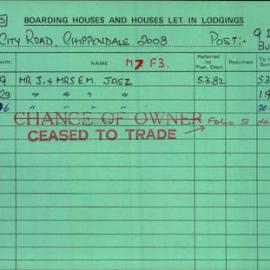 BOARDING HOUSES AND HOUSES LET IN LODGINGS
CITY ROAD, CHIPPENDALE 2008 POST:- 9
NAME M7 F3. Referred to Plan. Dept. Returned
MR J. & MRS E.M. JASZ 5.3.82
" " " "
" " " "
CHANGE OF OWNER
CEASED TO TRADE Folio 51